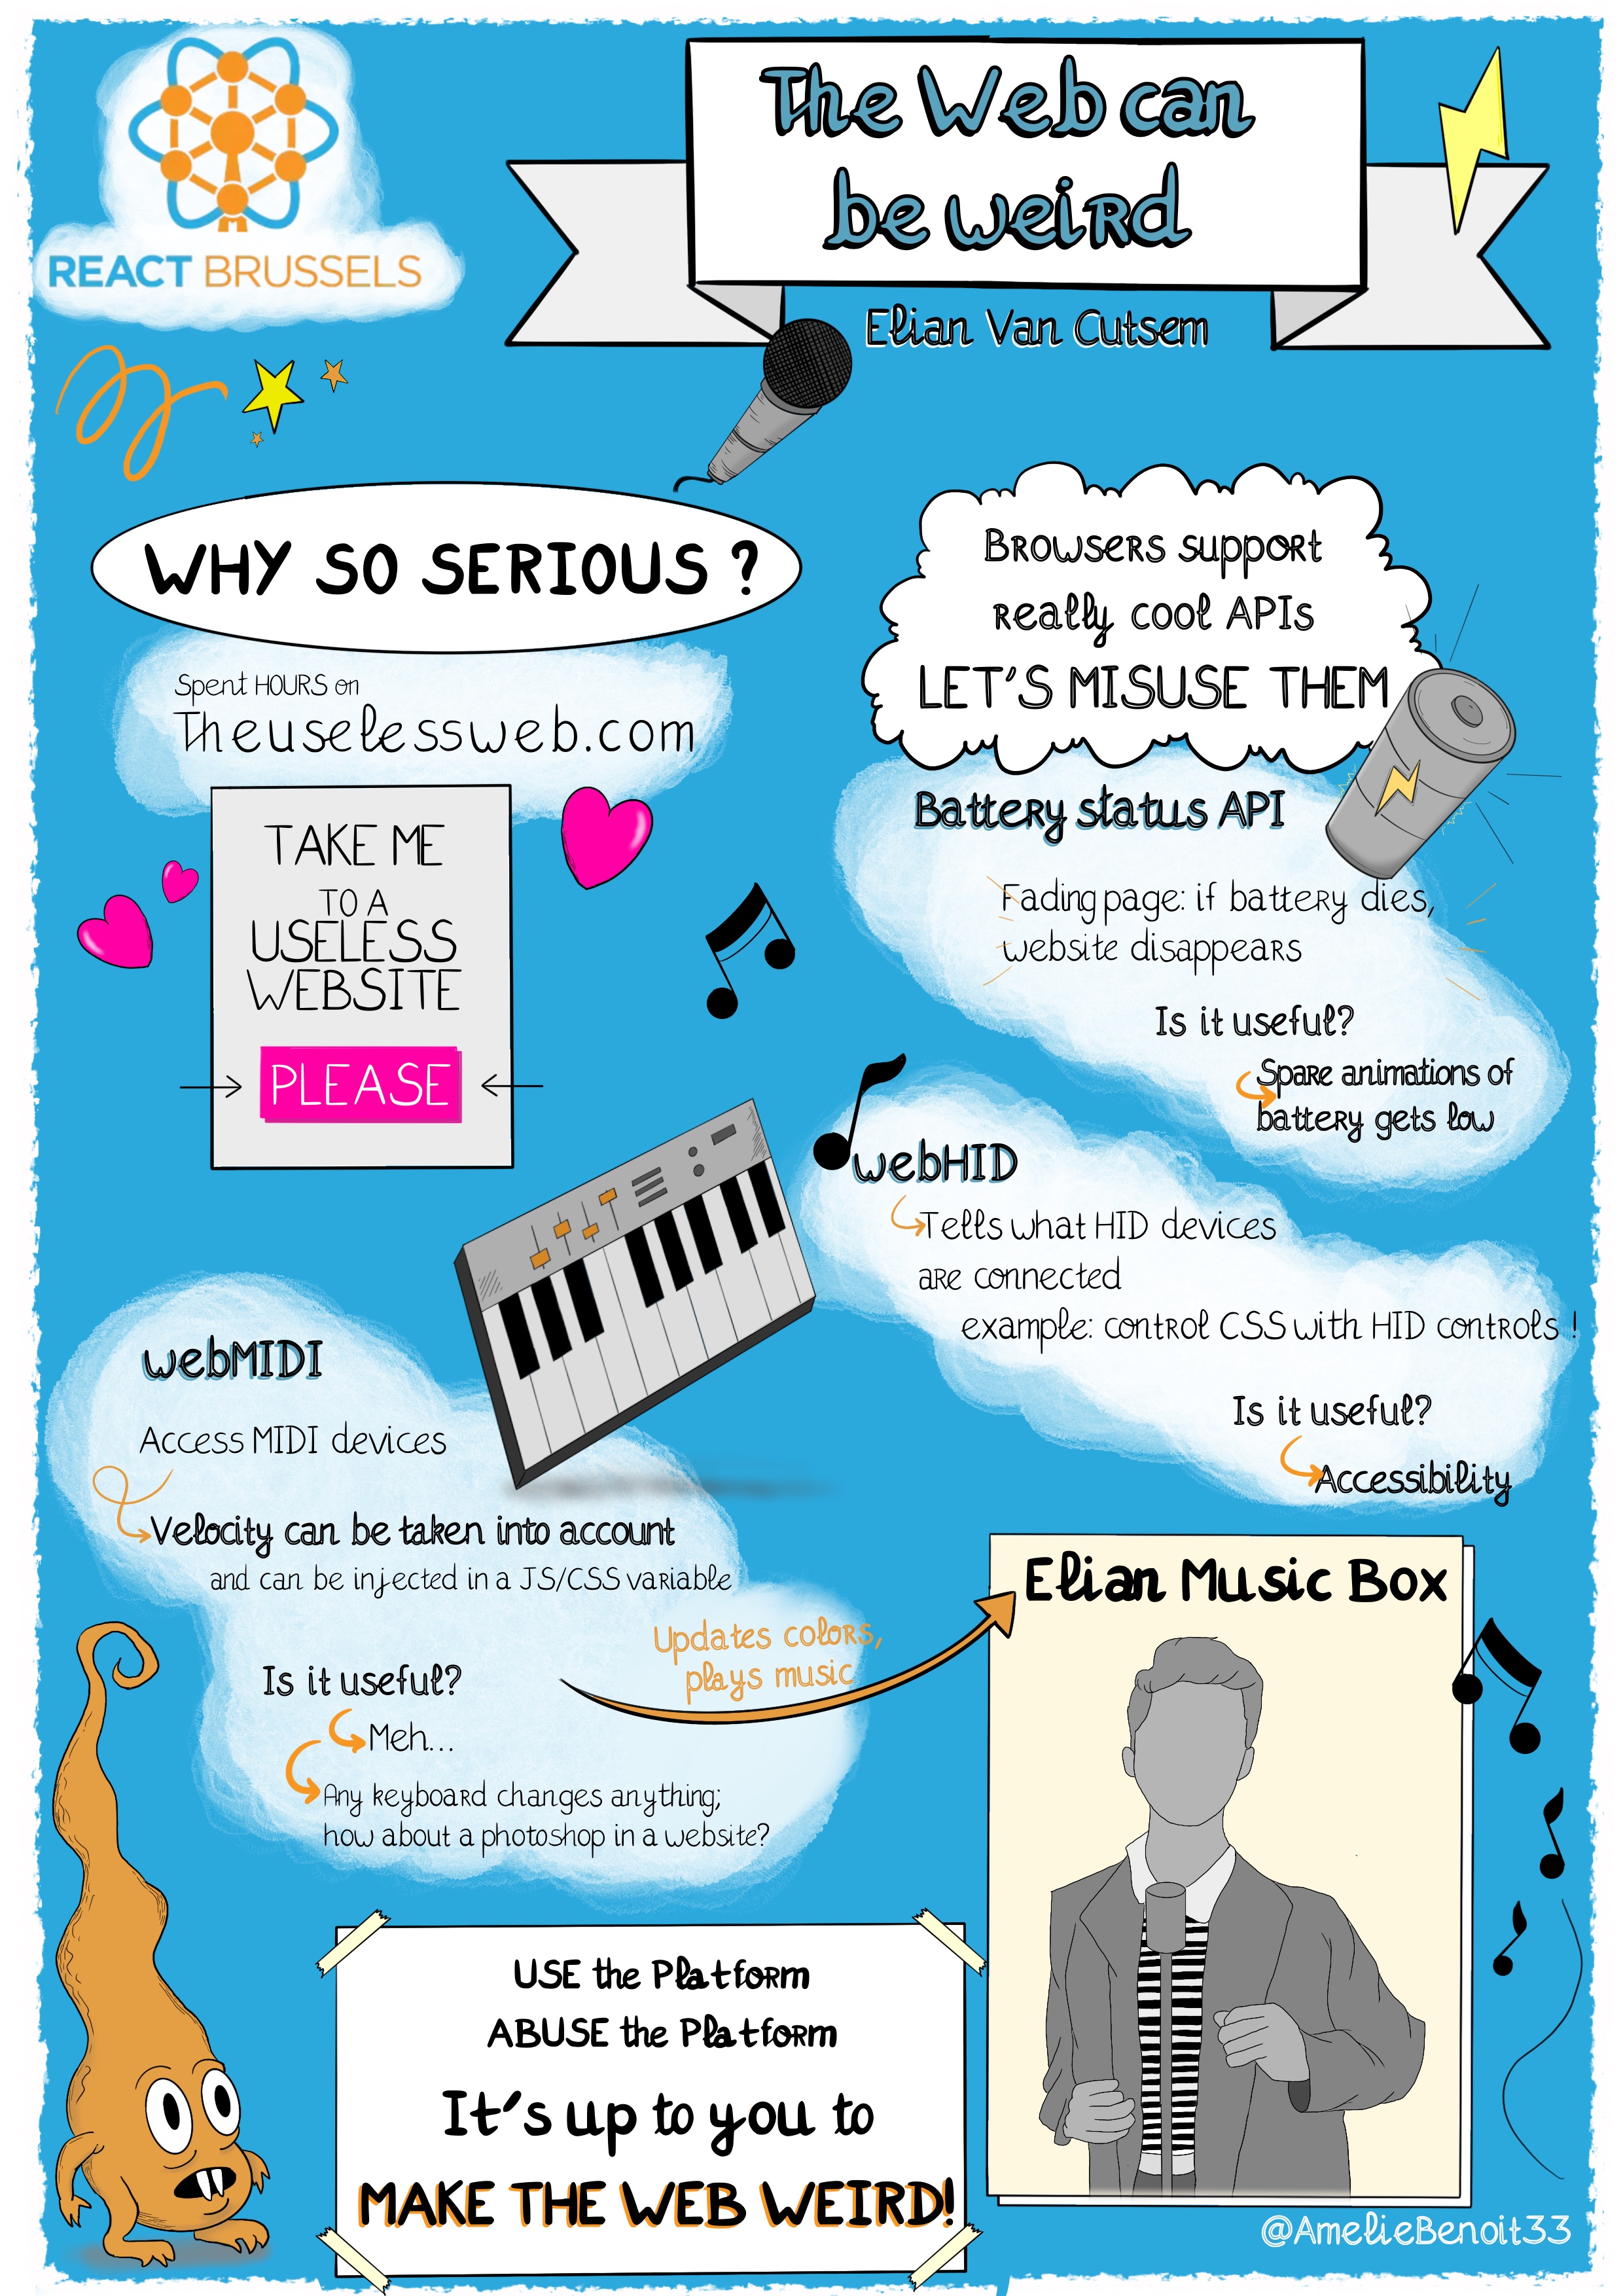 REACT BRUSSELS
The Web can
be weird
Elian Van Cutsem
WHY SO SERIOUS ?
Spent HOURS on
Theuselessweb.com
TAKE ME
TO A
USELESS
WEBSITE
PLEASE
Browsers support
really cool APIs
LET'S MISUSE THEM
Battery status API
Fading page: if battery dies,
website disappears
Is it useful?
Spare animations of
battery gets low
webHID
Tells what HID devices
are connected
example: control CSS with HID controls !
Is it useful?
Accessibility
webMIDI
Access MIDI devices
Velocity can be taken into account
and can be injected in a JS/CSS variable
Is it useful?
Meh...
Any keyboard changes anything;
how about a photoshop in a website?
Updates colors,
plays music
Elian Music Box
USE the Platform
ABUSE the Platform
It's up to you to
MAKE THE WEB WEIRD!
@AmelieBenoit33